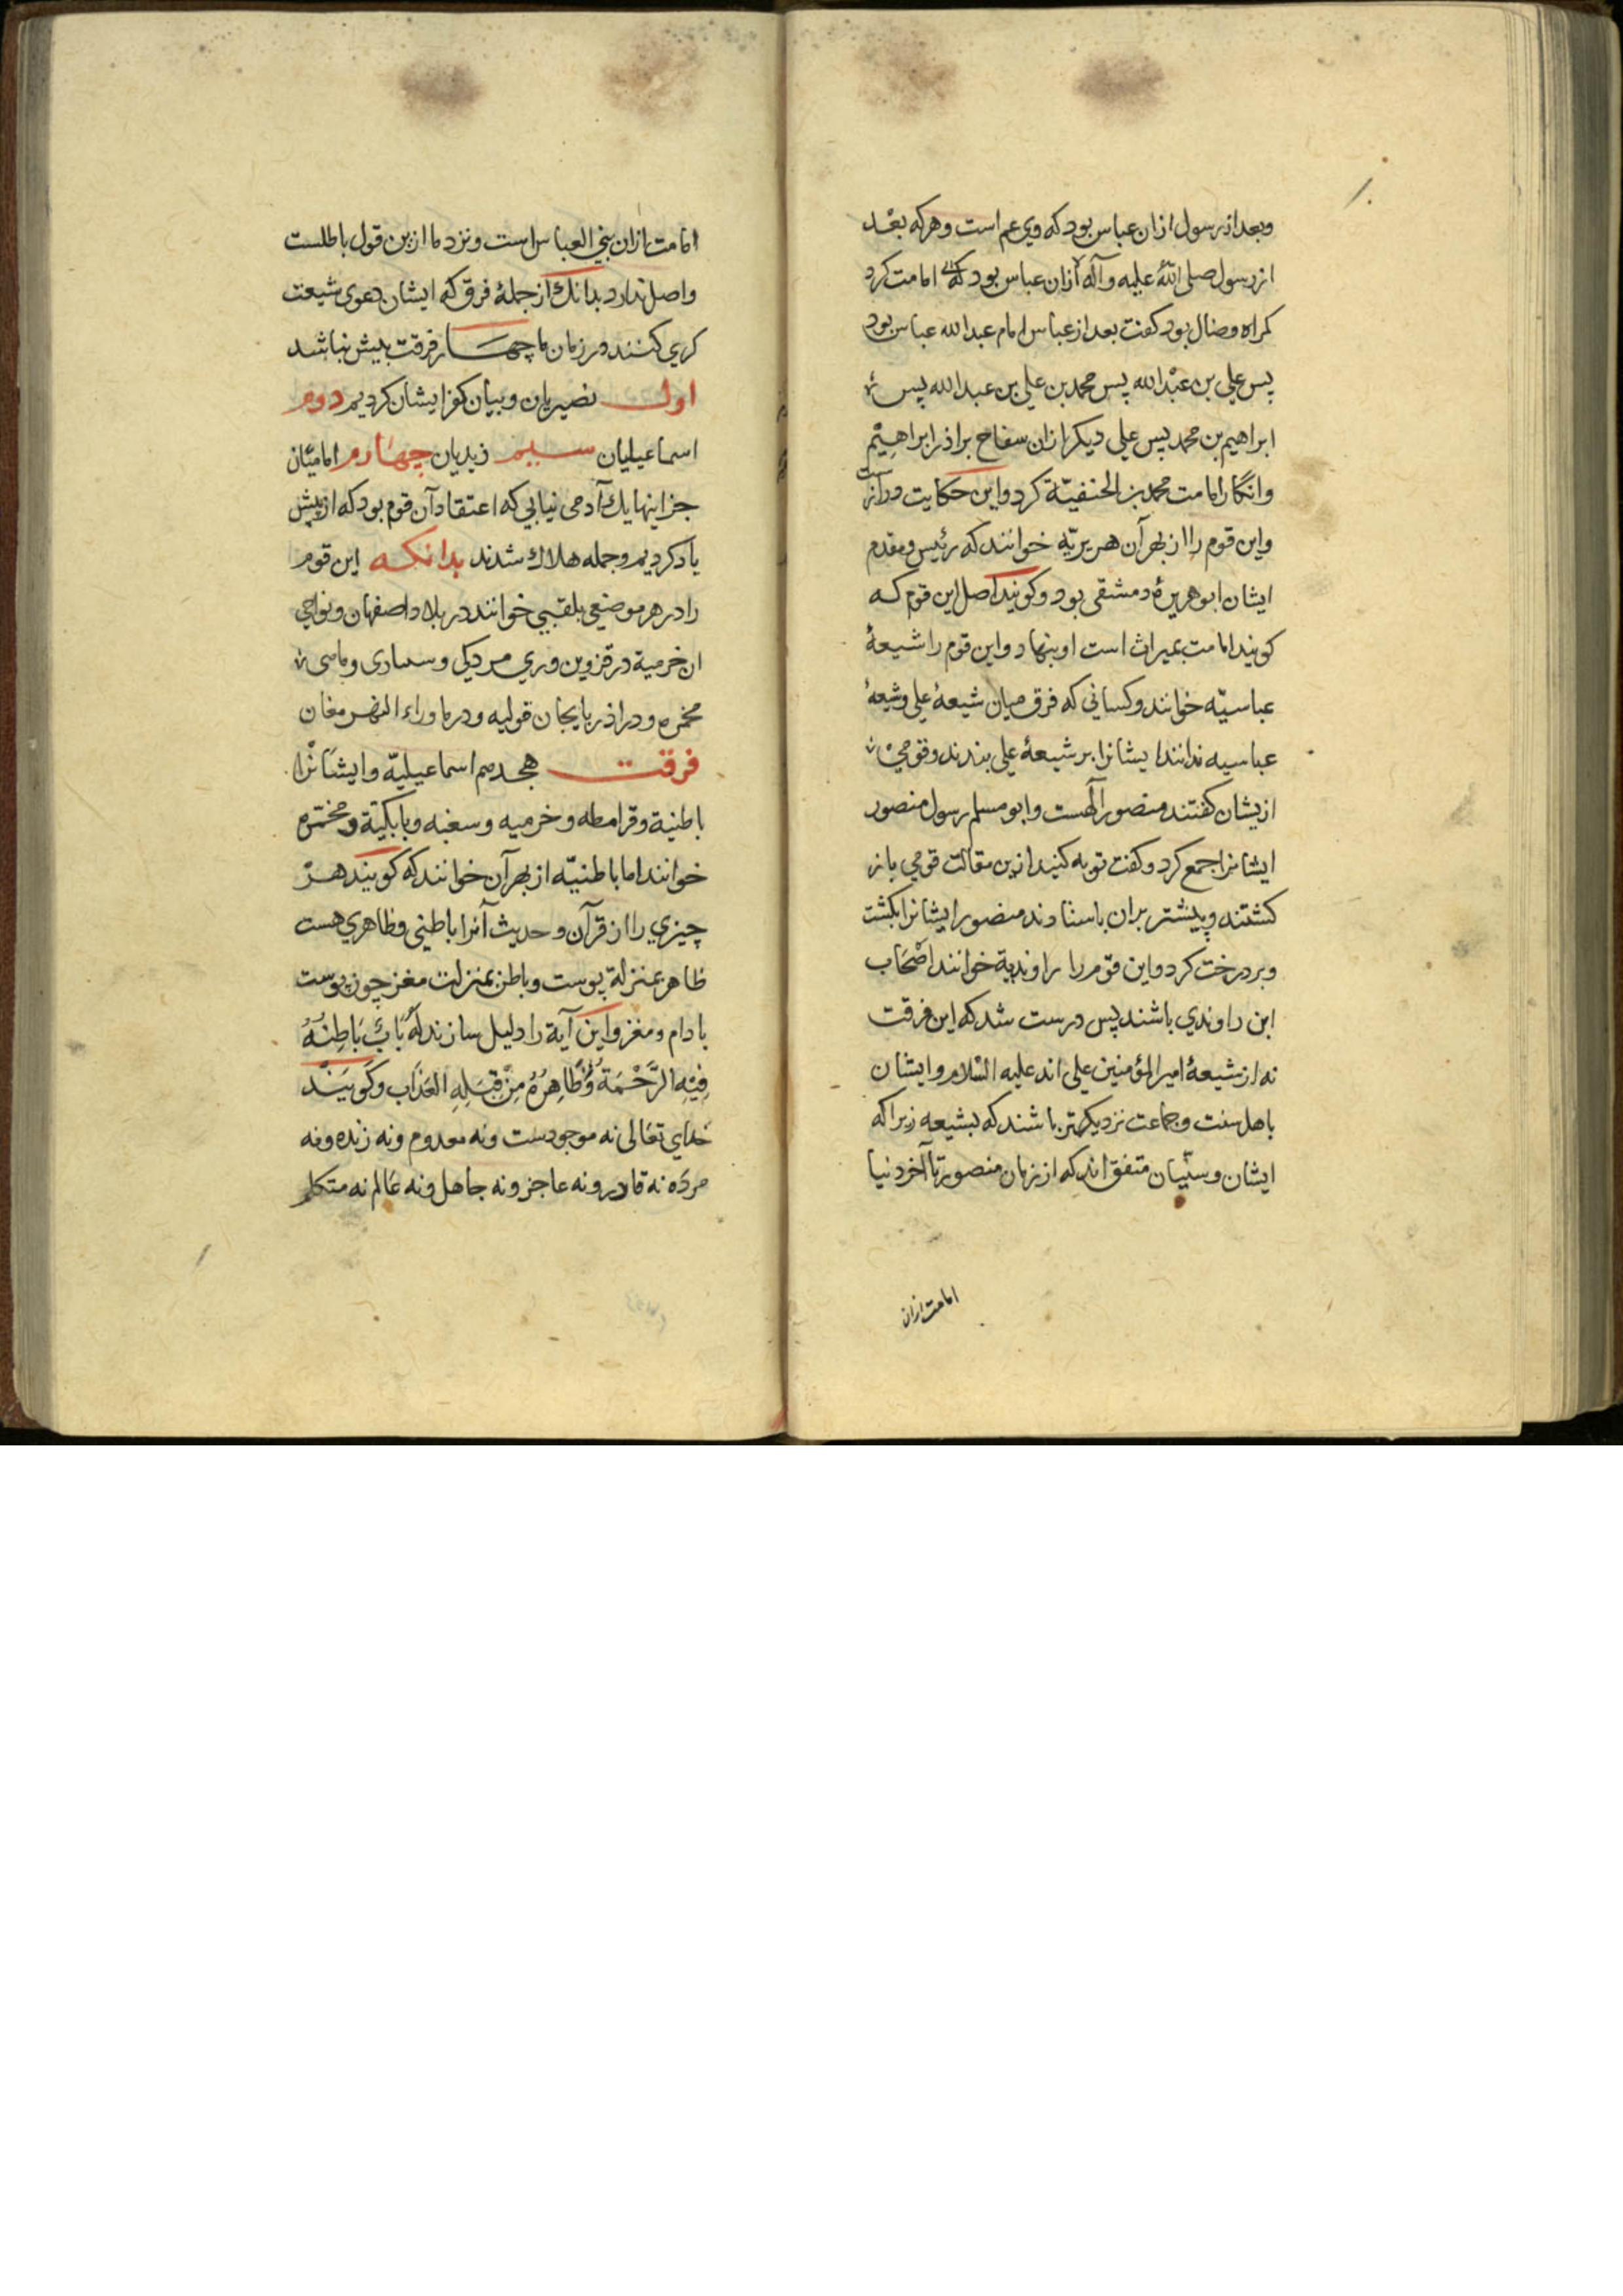 وبعد از رسول ازان عباس بود که وی عم است وهرکه بعد
از رسول صلی الله علیه وآله ازان عباس بود که امامت کرد
کمراه وضال بود کفت بعد از عباس امام عبدالله عباس بود
پس علی بن عبدالله پس محمد بن علی بن عبدالله پس
ابراهیم بن محمد پس علی دیکر ازان سفاح براذر ابراهیم
وانکار امامت محمد بن الحنفیّة کرد واین حکایت درازست
واین قوم را از بهر آن هریریّه خوانند که رئیس ومقدم
ایشان ابوهریرهٔ دمشقی بود وکویند اصل این قوم که
کویند امامت بمیراث است او بنهاد واین قوم را شیعهٔ
عباسیّه خوانند وکسانی که فرق میان شیعهٔ علی وشیعهٔ
عباسیه ندانند ایشانرا بر شیعهٔ علی بندند وقومی
ازیشان کفتند منصور آلهست وابو مسلم رسول منصور
ایشانرا جمع کرد وکفت توبه کنید ازین مقالت قومی باز
کشتند وبیشتر بران باستادند منصور ایشانرا بکشت
وبر درخت کرد واین قوم را راوندیة خوانند اصحاب
ابن راوندی باشند پس درست شد که این فرقت
نه از شیعهٔ امیر المؤمنین علی اند علیه السّلام وایشان
باهل سنت وجماعت نزدیکتر باشند که بشیعه زیرا که
ایشان وسنّیان متفق اند که از زمان منصور تا آخر دنیا
امامت ازان
امامت ازان بنی العباس است ونزد ما ازین قول باطلست
واصل ندارد بدانک از جملهٔ فرق که ایشان دعوی شیعت
کری کنند در زمان ما چهار فرقت بیش نباشد
اول نصیریان وبیان کفر ایشان کردیم دوم
اسماعیلیان سییم زیدیان چهارم امامیّان
جز اینها یك آدمی نیابی که اعتقاد آن قوم بود که از پیش
یاد کردیم وجمله هلاك شدند بدانکه این قوم
را در هر موضعی بلقبی خوانند در بلاد اصفهان ونواحی
ان خرمیة در قزوین وری مزدکی
محمره ودر اذربایجان قولیه ودر ماوراء النهر مغان
فرقت هجدهم اسماعیلیّه وایشانرا
باطنیة وقرامطه وخرمیه وسبعیه وبابکیّة ومحمّره
خوانند اما باطنیّه از بهر آن خوانند که کویند هر
چیزی را از قرآن وحدیث آنرا باطنی وظاهری هست
ظاهر بمنزلة پوست وباطن بمنزلت مغز چون پوست
بادام ومغز واین آیة را دلیل سازند لَهُ بَابٌ بَاطِنُهُ
فِیْهِ الرَّحْمَةُ وَظَاهِرُهُ مِنْ قِبَلِهِ العَذَاب وکویند
خدای تعالی نه موجودست ونه معدوم ونه زنده ونه
مرده نه قادر ونه عاجز ونه جاهل ونه عالم نه متکلم